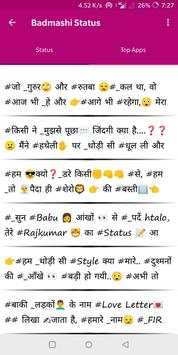 4.52 K/s 7:27
Badmashi Status
Status Top Apps
#जो _गुरुर😏 और #रुतबा 😉 #_कल था, वो
#आज भी _हे और 👉 #आगे भी #रहेगा,😉 मेरा
#किसी ने _मुझसे पूछा💬 जिंदगी क्या है....❓❓
😐 मैंने #हथेली ✋ पर _थोड़ी सी #धूल ली और
#हम 😎क्यो❓..डरे किसी👊👊👊 से.. #हम
_तो 👶पैदा ही #शेरो🦁 👉 की #बस्ती🏘️
#_सुन #Babu 👩 आंखों 👀 से #_पर्दे htalo,
तेरे #Rajkumar 🤴 का #Status 📝 आ
👉#हम _थोड़ी सी #Style क्या #मारे.. #दुश्मनों
की #_आँखे 👀 बड़ी हो गयी..😉 #अभी तो
#बाकी _लडकों👨‍🎓 के नाम #Love Letter💌
## लिखा ✍जाता है, #हमारे _नाम😉 #_FIR